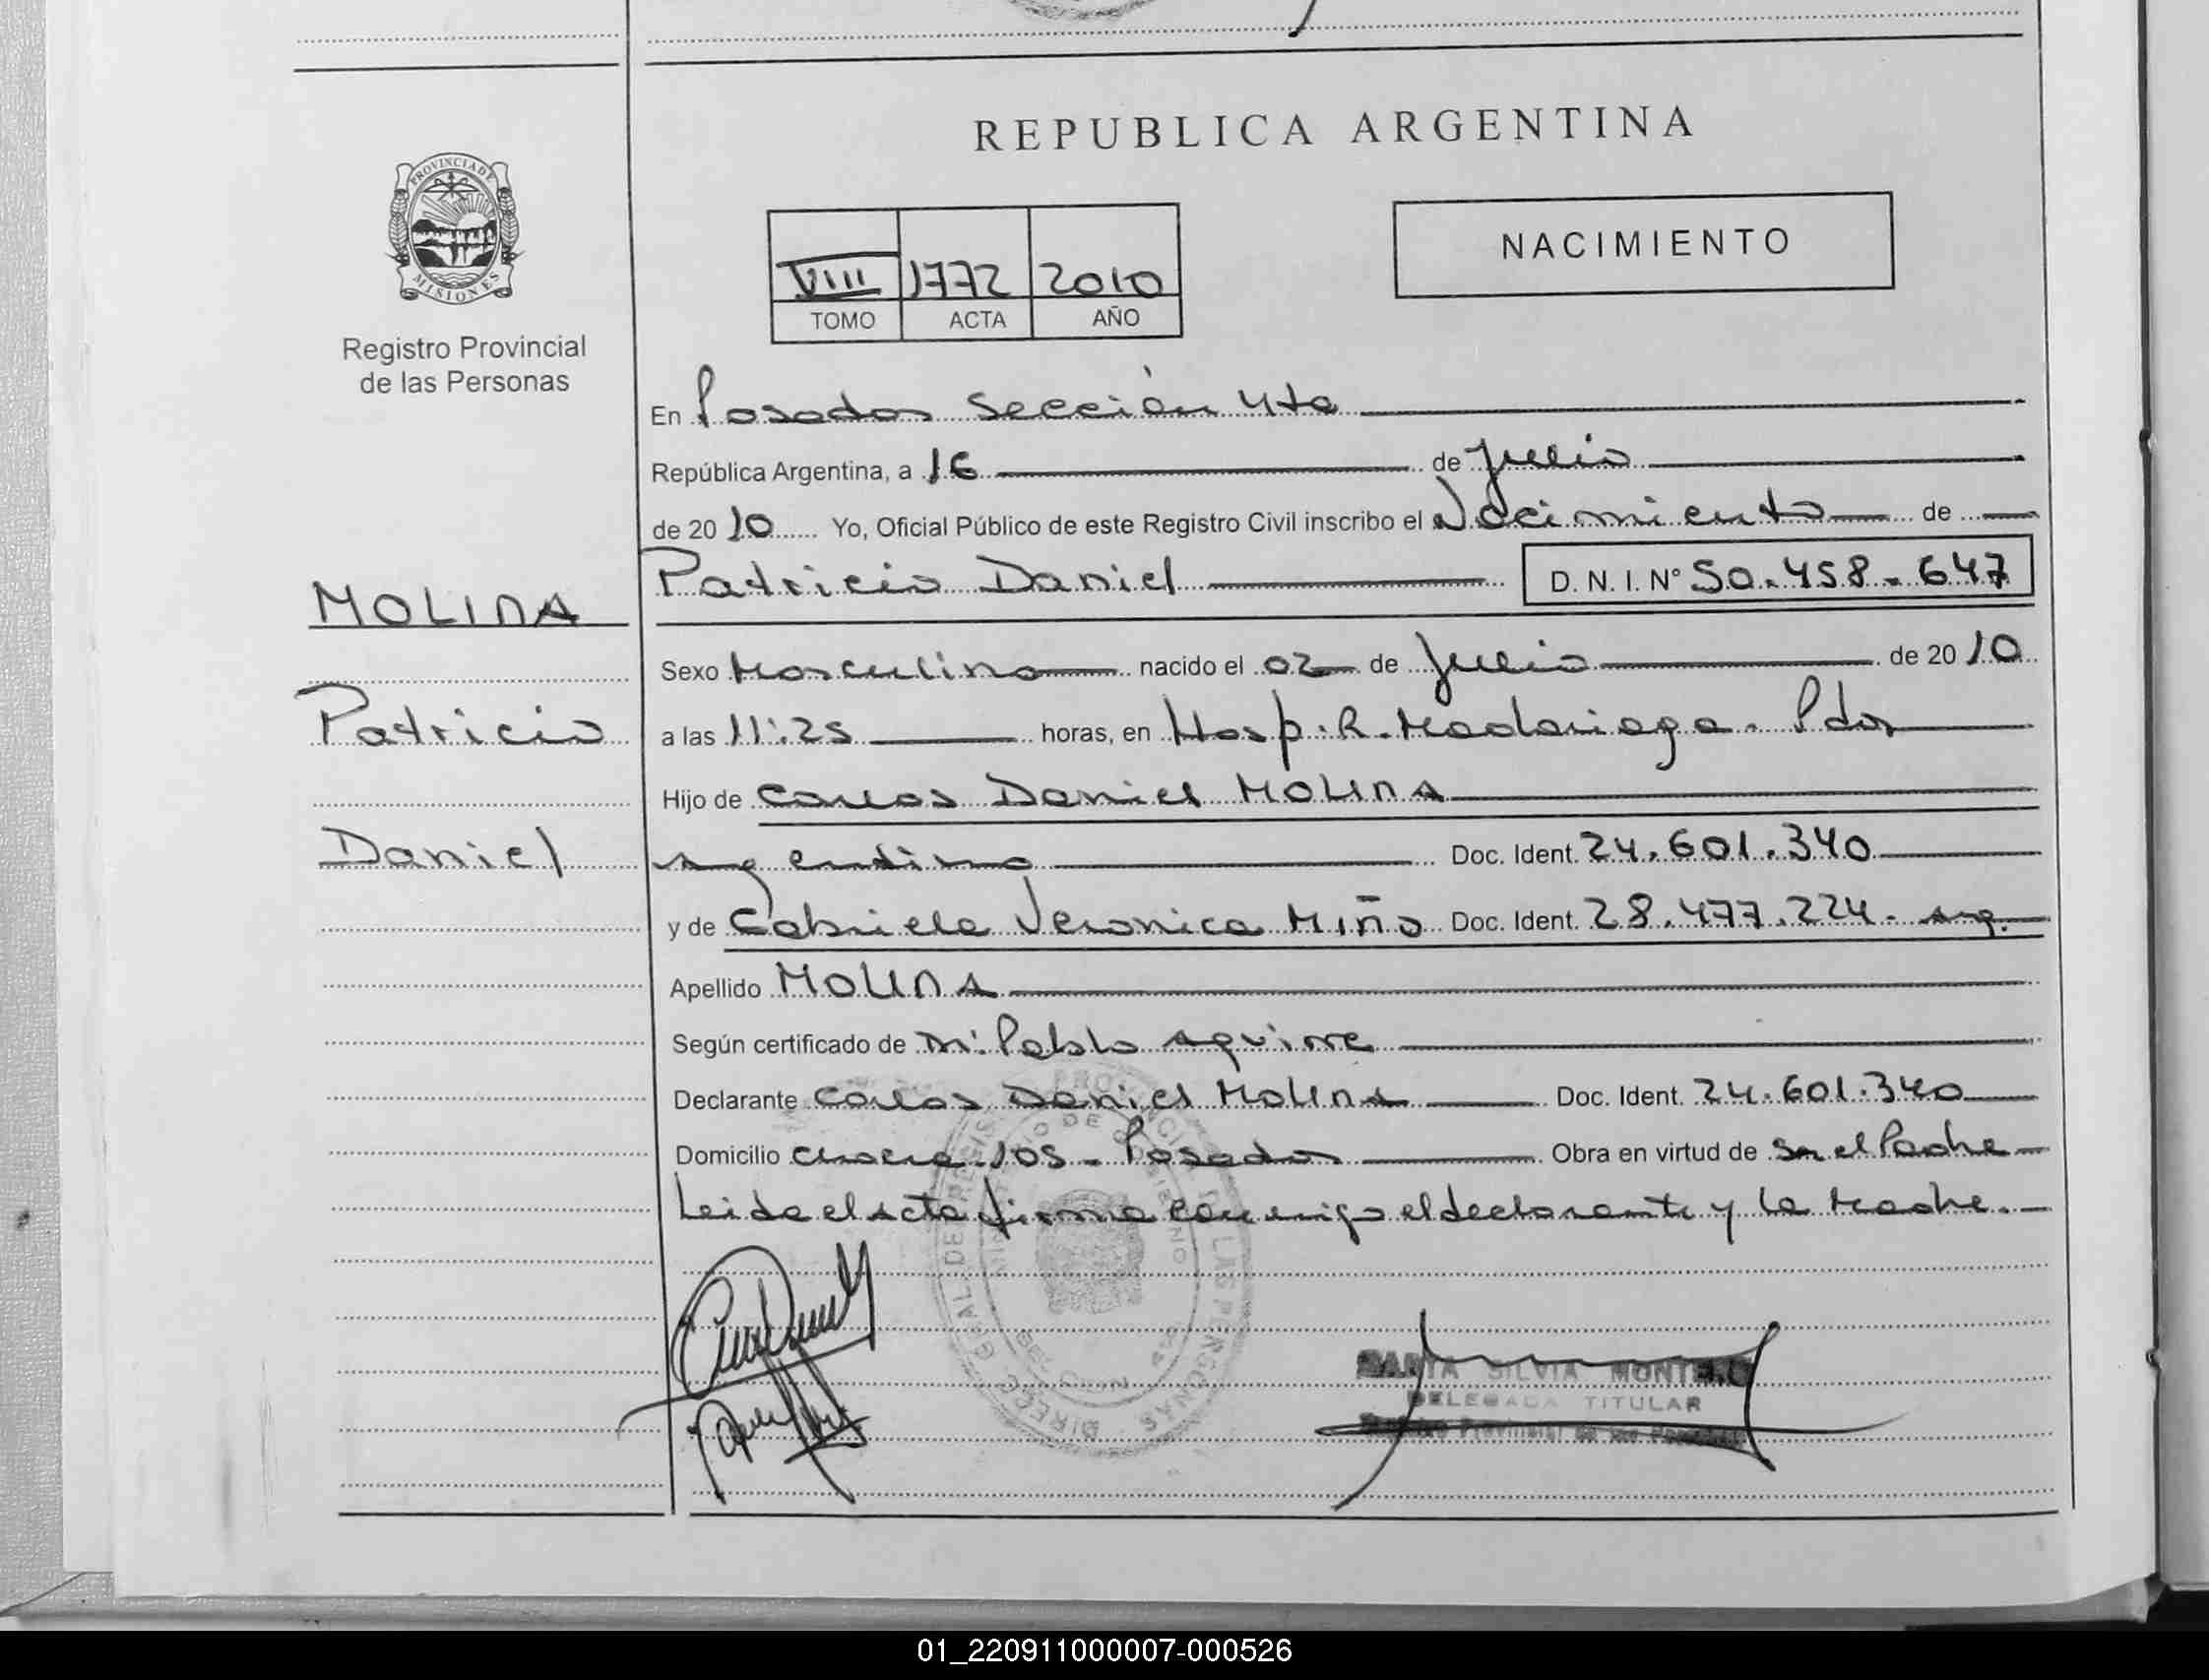 REPUBLICA ARGENTINA
PROVINCIA DE
MISIONES
Registro Provincial
de las Personas
NACIMIENTO
VIII 1772 2010
TOMO ACTA AÑO
En Posadas Sección 4ta
República Argentina, a 16 de Julio
de 2010 Yo, Oficial Público de este Registro Civil inscribo el Nacimiento de
Patricio Daniel D. N. I. Nº 50.458.647
MOLINA
Patricio
Daniel
Sexo Masculino nacido el 02 de Julio de 2010
a las 11:25 horas, en Hosp. R. Madariaga. Pdas
Hijo de Carlos Daniel MOLINA
argentino Doc. Ident. 24.601.340
y de Gabriela Veronica MIÑO Doc. Ident. 28.477.224. arg.
Apellido MOLINA
Según certificado de Pablo Aguirre
Declarante Carlos Daniel MOLINA Doc. Ident. 24.601.340
Domicilio Chacra 105 - Posadas Obra en virtud de Ser el Padre
Leida el acta firma conmigo el declarante y la Madre.
SILVIA
DELEGADA TITULAR
01_220911000007-000526